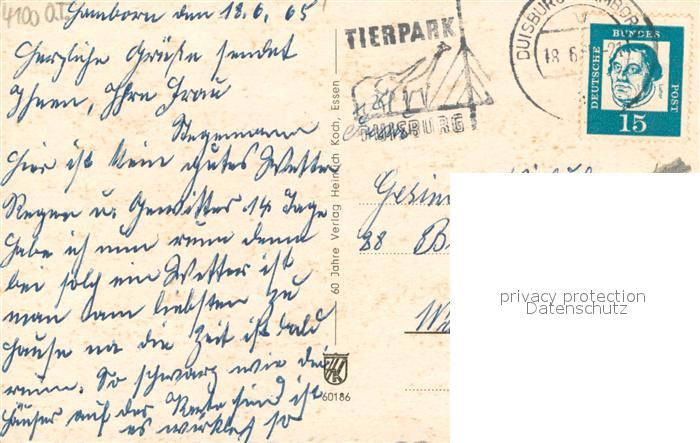 4100 O.T.
Hamborn den 18.6.65
Herzliche Grüße sendet
Ihnen, Ihre Frau
Stegemann
Hier ist kein gutes Wetter
Regen u. Gewitter 14 Tage
habe ich nun rum denn
bei solch ein Wetter ist
man am liebsten zu
Hause na die Zeit ist bald
rum. So schwarz wie die
Häuser auf der Karte sind ist
es wirklich so
TIERPARK
DUISBURG
DUISBURG
18.6.
DEUTSCHE BUNDESPOST
15
60 Jahre Verlag Heinrich Koch, Essen
60186
88
privacy protection
Datenschutz